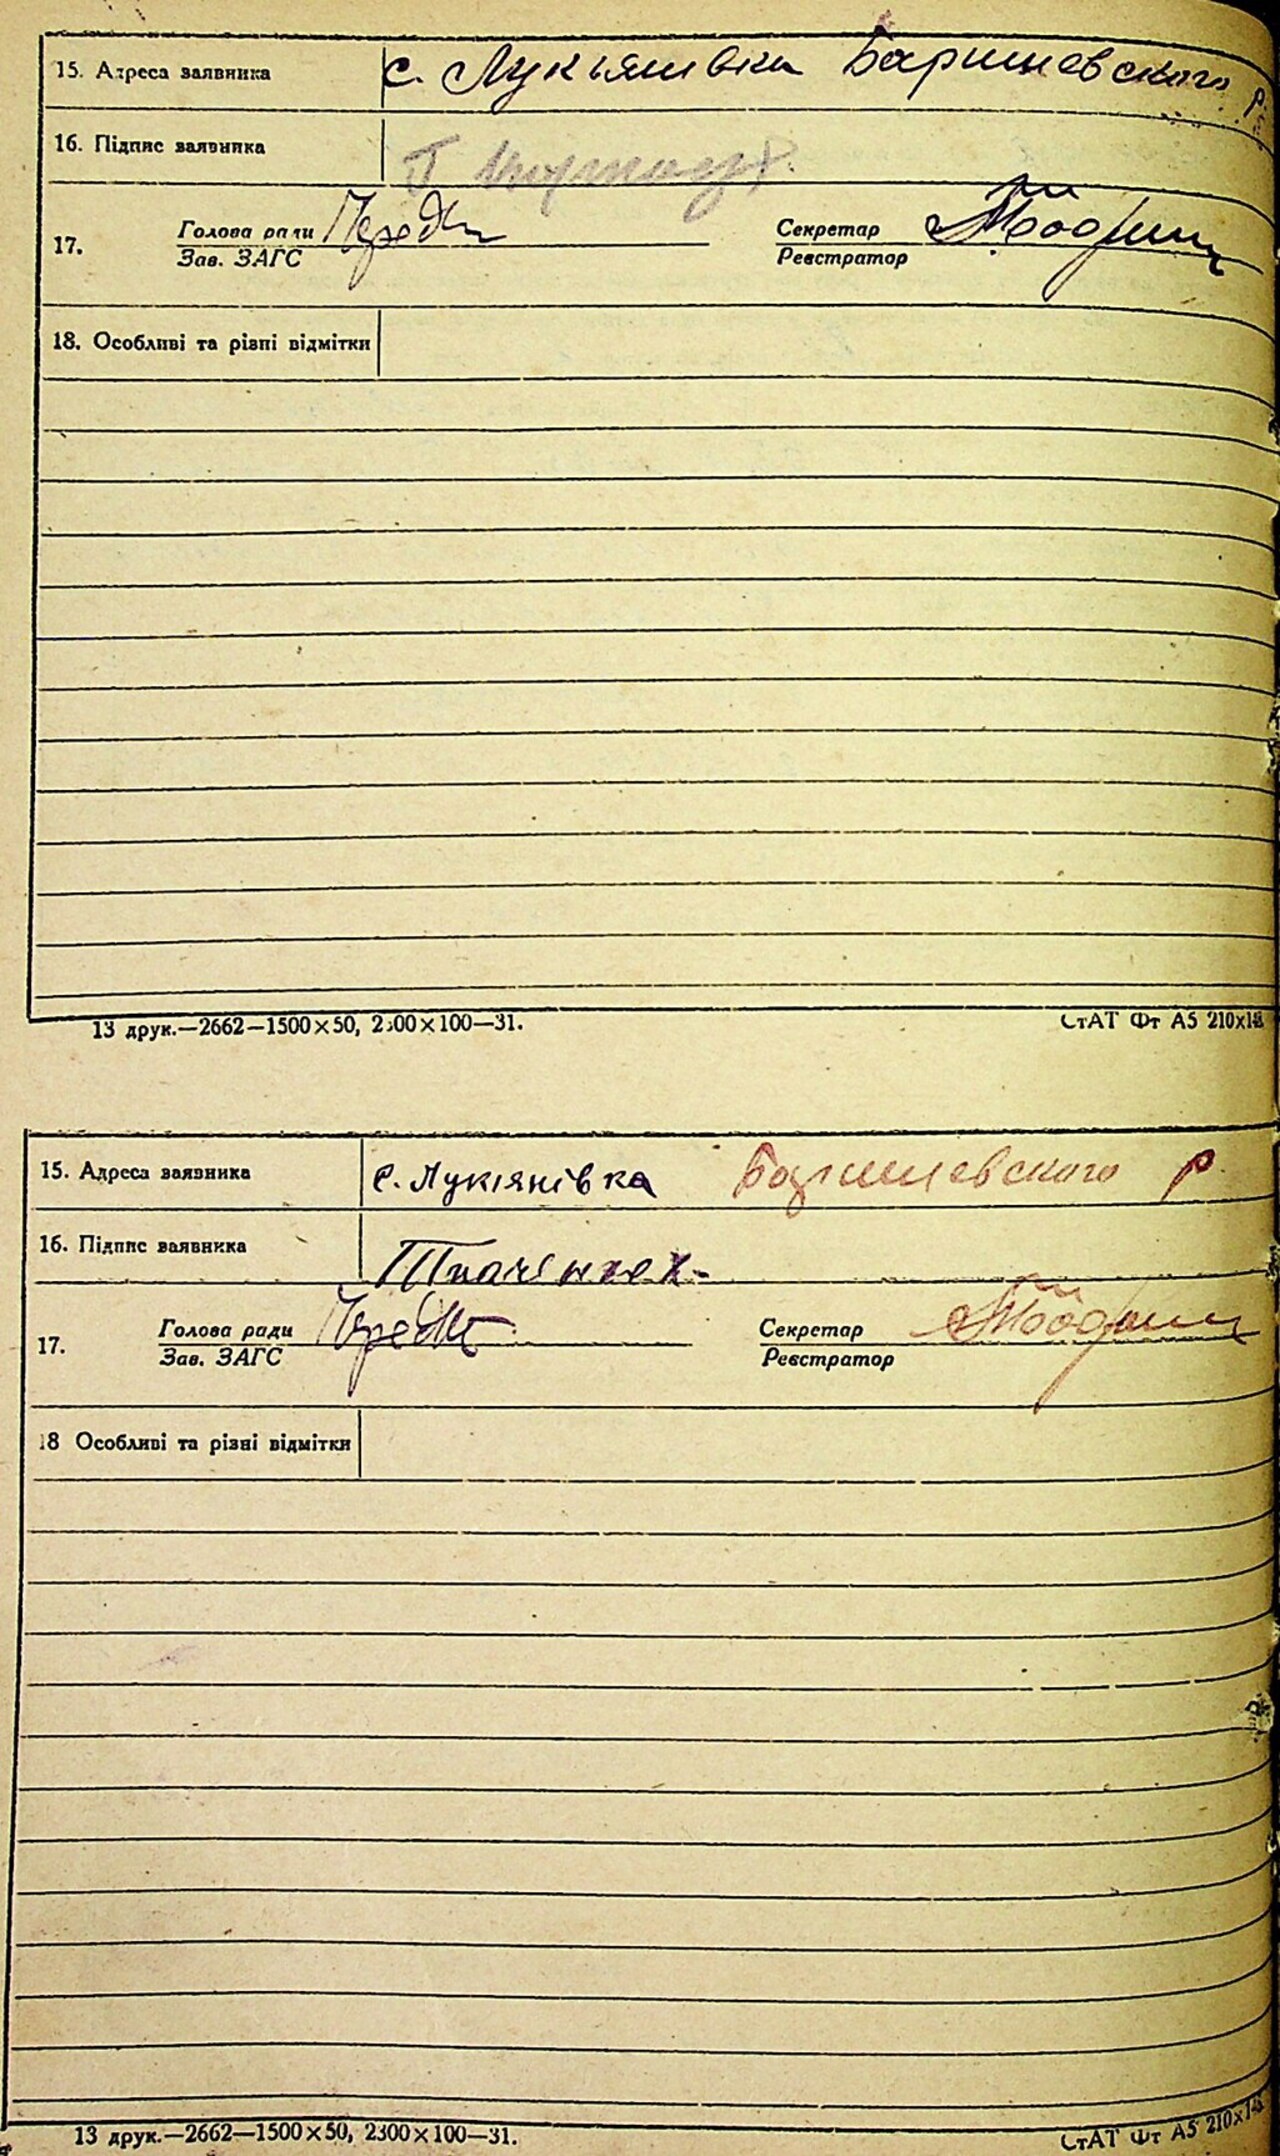 15. Адреса заявника с. Лукьянівка Баришевского р.
16. Підпис заявника
17. Голова ради Секретар
Зав. ЗАГС Реєстратор
18. Особливі та різні відмітки
13 друк.—2662—1500×50, 2300×100—31. СтАТ Фт А5 210х148
15. Адреса заявника с. Лукіянівка Баришевского р
16. Підпис заявника
17. Голова ради Секретар
Зав. ЗАГС Реєстратор
18 Особливі та різні відмітки
13 друк.—2662—1500×50, 2300×100—31. СтАТ Фт А5 210х148